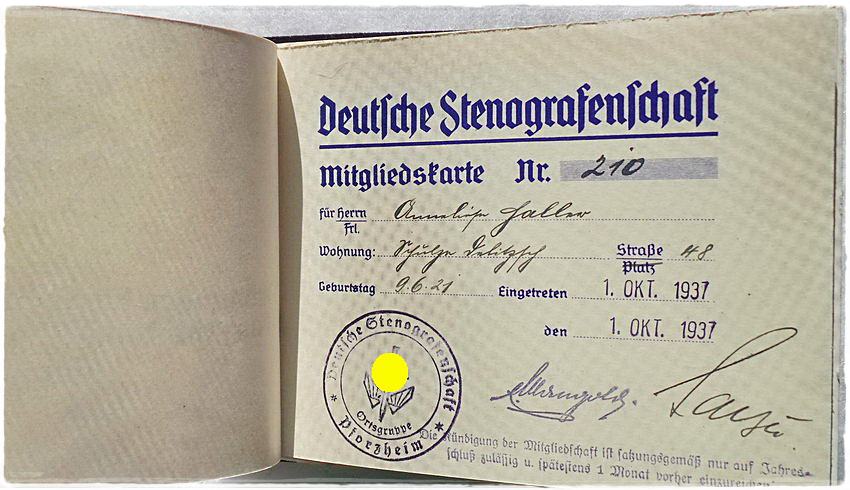 Deutsche Stenografenschaft
Mitgliedskarte Nr. 210
für Herrn Anneliese Haller
Frl.
Wohnung: Schulze Delitzsch Straße 48
Platz
Geburtstag 9.6.21 Eingetreten 1. OKT. 1937
den 1. OKT. 1937
Deutsche Stenografenschaft
Ortsgruppe
Pforzheim
Die Kündigung der Mitgliedschaft ist satzungsgemäß nur auf Jahres-
schluß zulässig u. spätestens 1 Monat vorher einzureichen